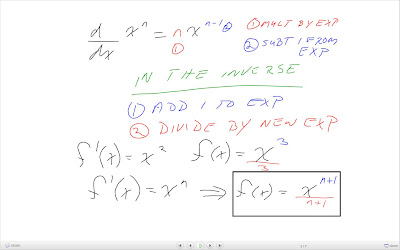 d/dx xⁿ = n xⁿ⁻¹ ② ① MULT BY EXP
① ② SUBT 1 FROM EXP
IN THE INVERSE
① ADD 1 TO EXP
② DIVIDE BY NEW EXP
f'(x) = x² f(x) = x³/3
f'(x) = xⁿ ⇒ f(x) = xⁿ⁺¹/n+1